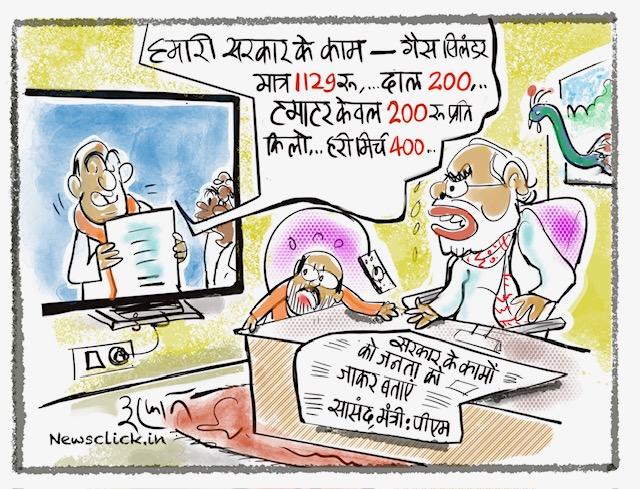 हमारी सरकार के काम — गैस सिलंडर
मात्र 1129 रू,...दाल 200,..
टमाटर केवल 200 रू प्रति
किलो,.. हरी मिर्च 400..
सरकार के कामों
को जनता को
जाकर बताएं
सासंद, मंत्री: पीएम
इरफान
Newsclick.in